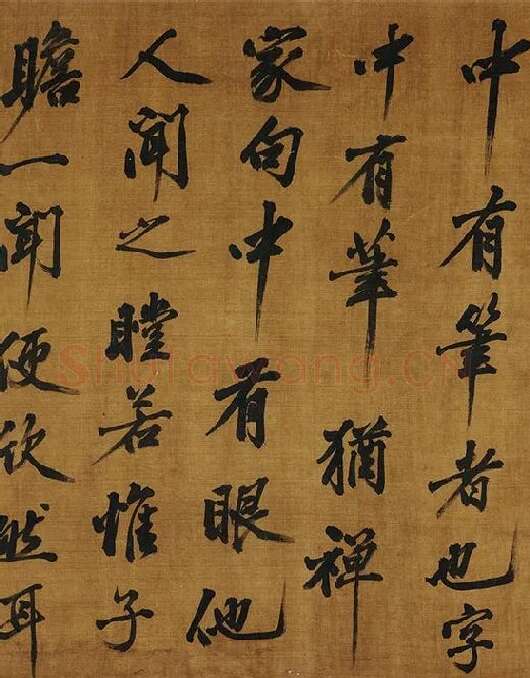 中有筆者也字
中有筆猶禪
家句中有眼他
人聞之瞠若惟子
瞻一聞便欣然耳